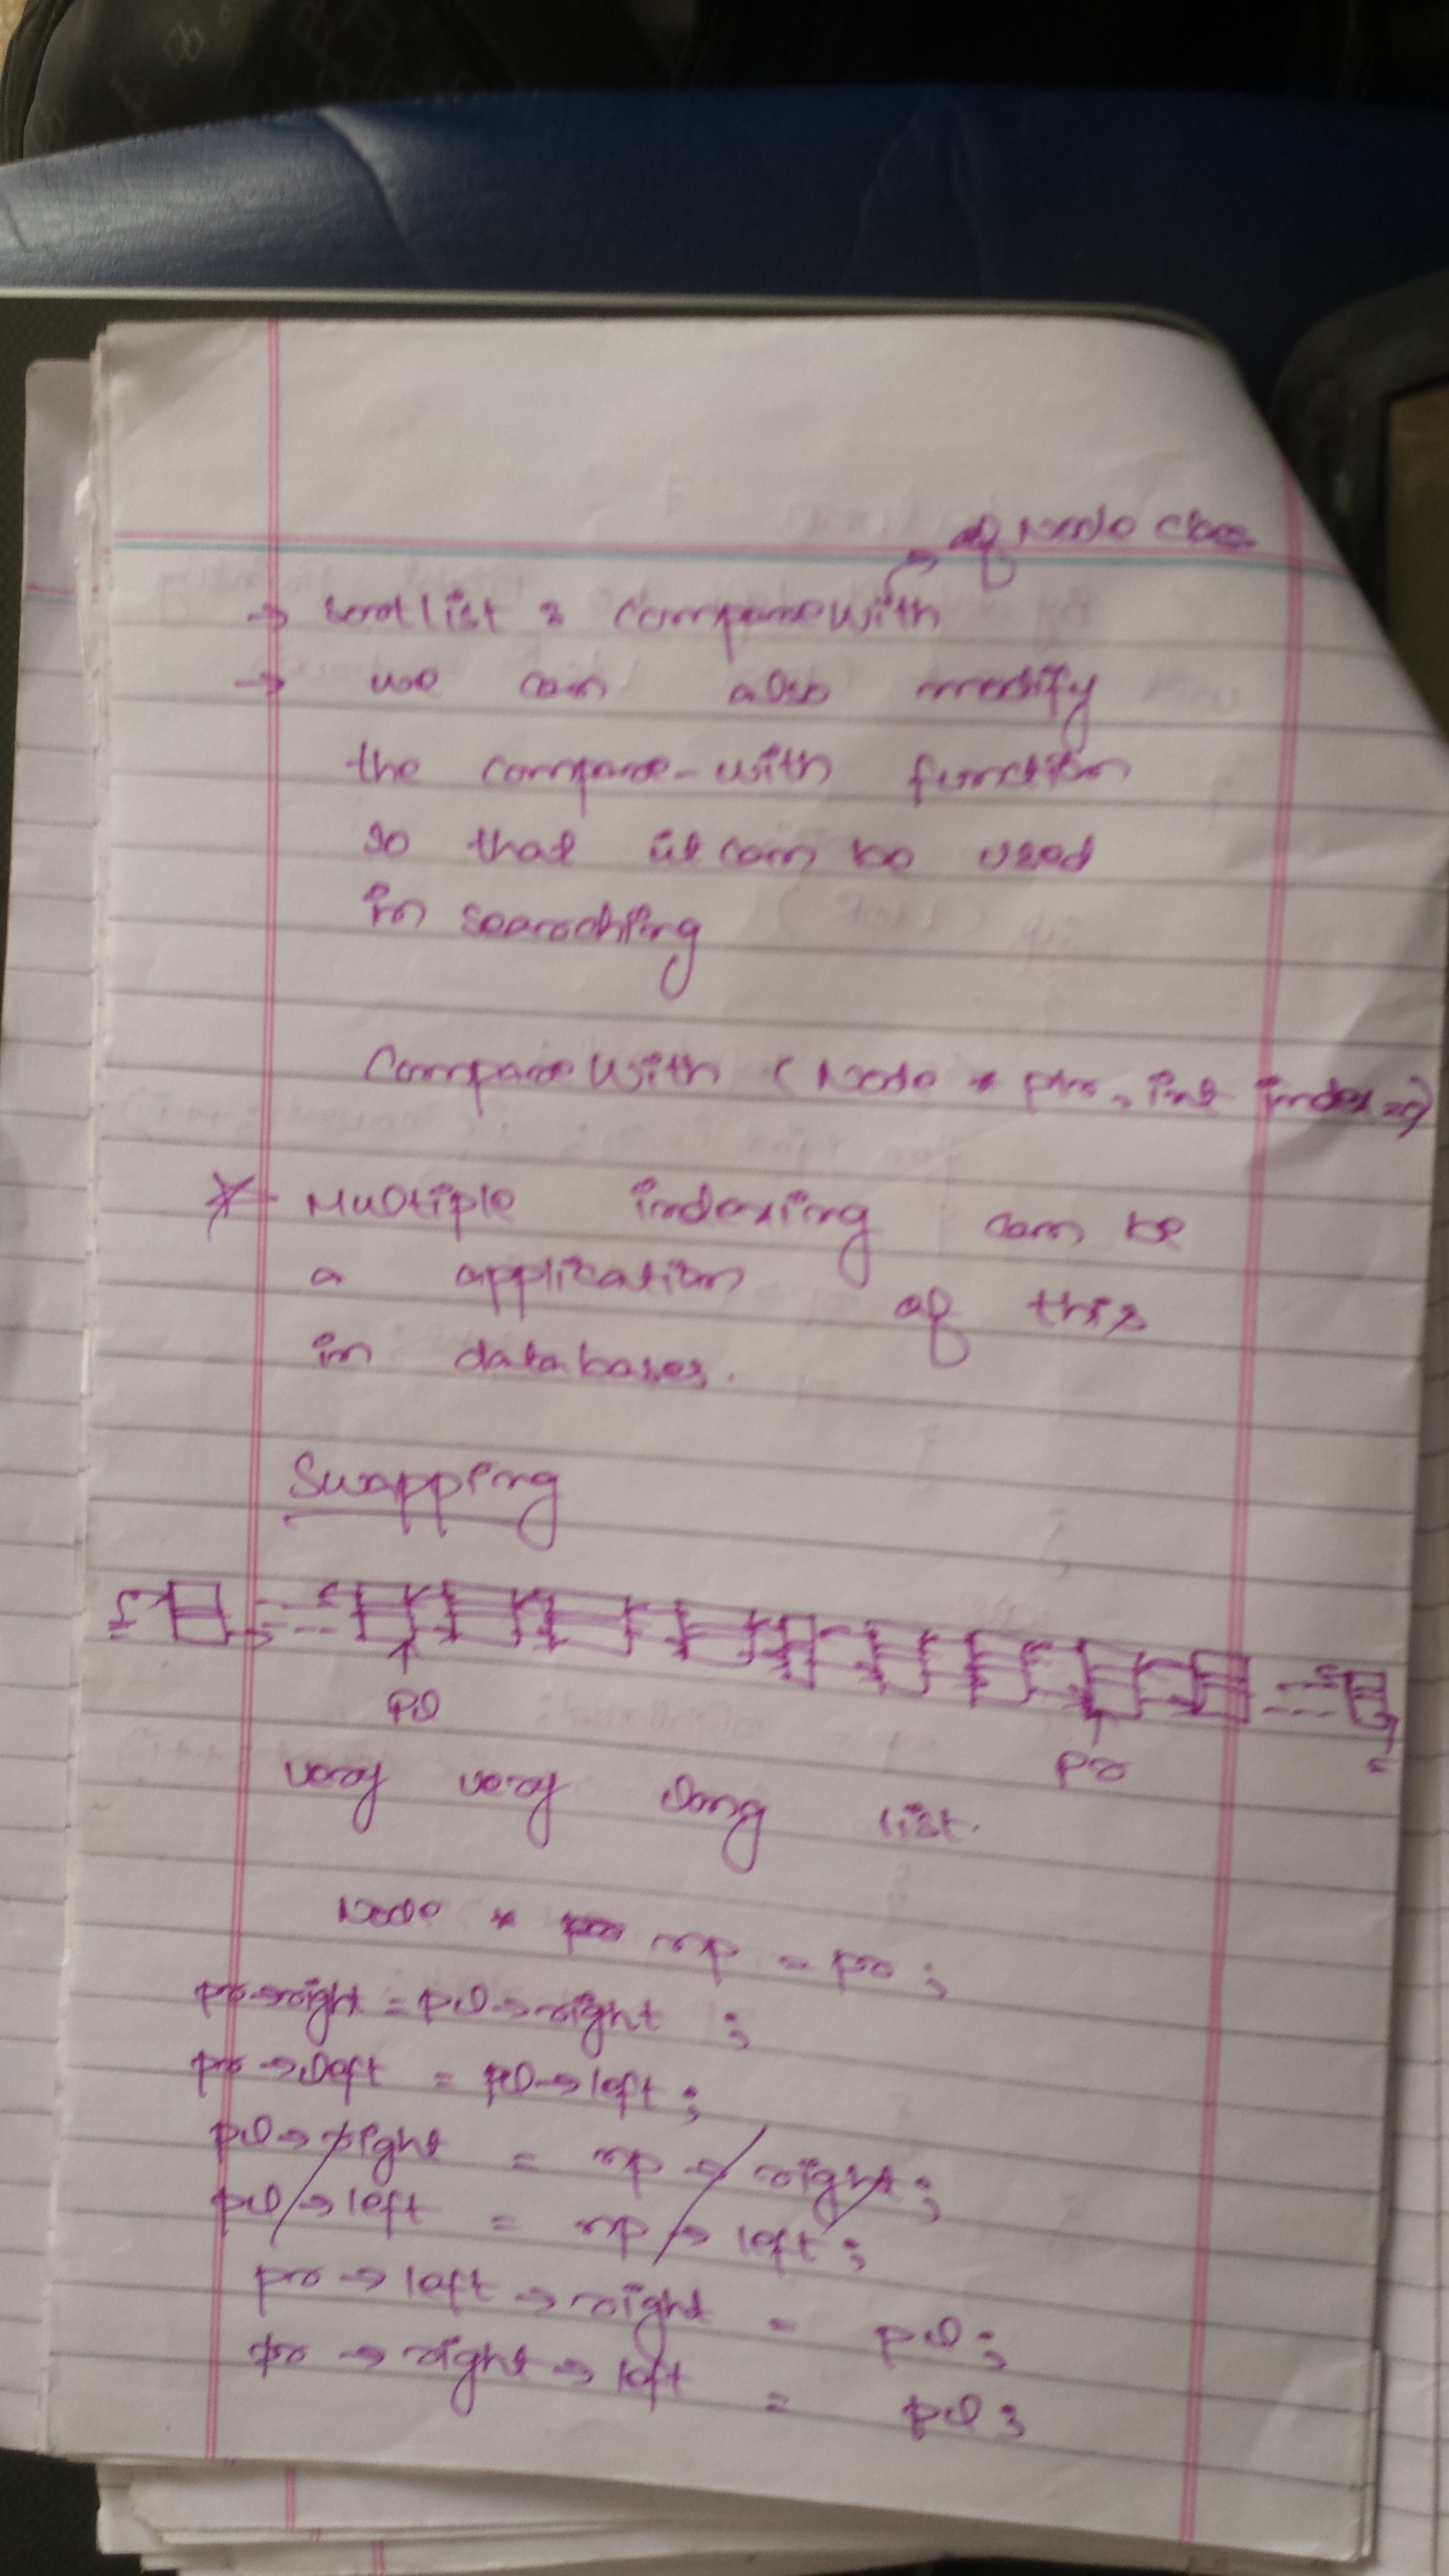 of Node class
→ sortlist : compareWith
→ we can also modify
the compare-with function
so that it can be used
in searching
CompareWith (Node * ptr, int index=0)
* Multiple indexing can be
a application of this
in databases.
Swapping
pl
pr
very very long list.
Node * rp = pr ;
pr→right = pl→right ;
pr→left = pl→left ;
pl→right = rp→right ;
pl→left = rp→left ;
pr→left→right = pl ;
pr→right→left = pl ;